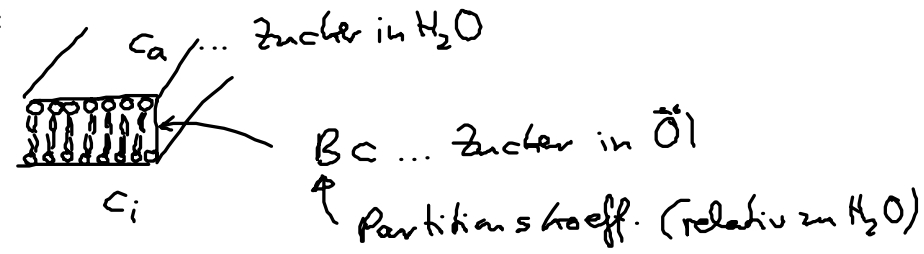 ca ... Zucker in H₂O
Bc ... Zucker in Öl
ci
Partitionskoeff. (relativ zu H₂O)